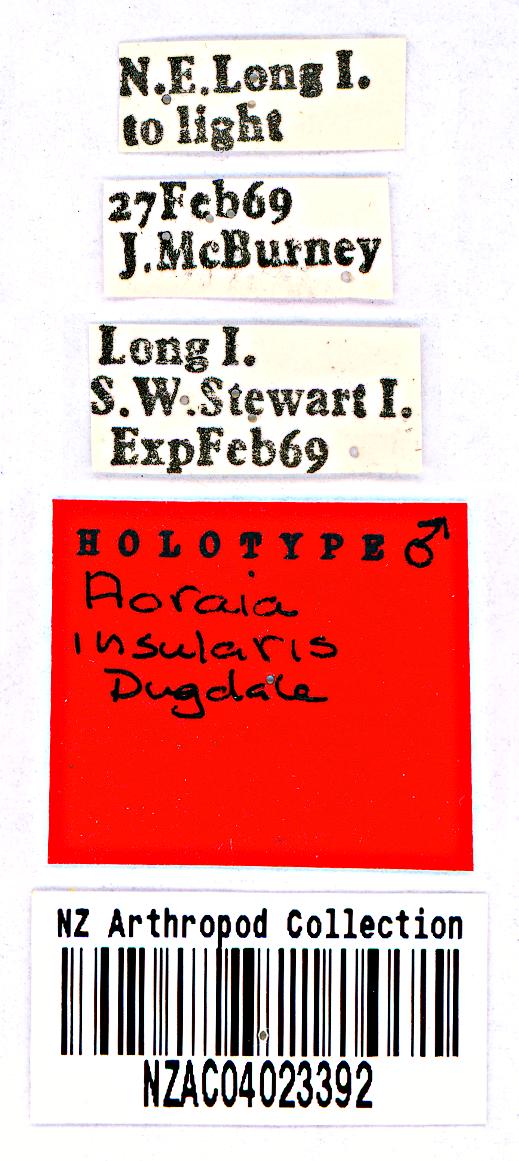 N.E.Long I.
to light
27Feb69
J.McBurney
Long I.
S.W.Stewart I.
ExpFeb69
HOLOTYPE ♂
Aoraia
insularis
Dugdale
NZ Arthropod Collection
NZAC04023392